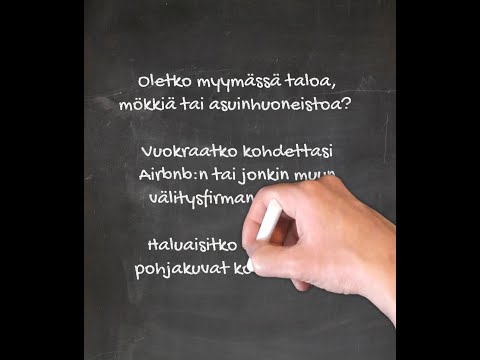 Oletko myymässä taloa,
mökkiä tai asuinhuoneistoa?
Vuokraatko kohdettasi
Airbnb:n tai jonkin muun
välitysfirman
Haluaisitko
pohjakuvat